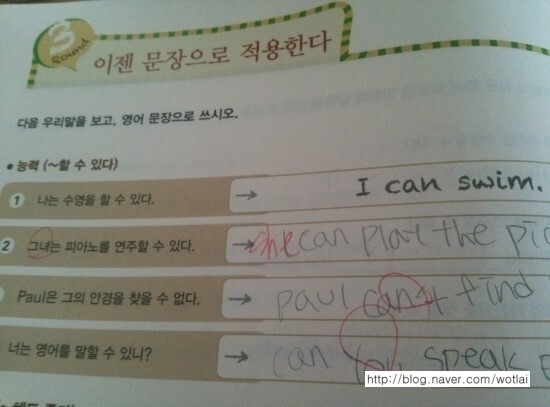 3
Round
이젠 문장으로 적용한다
다음 우리말을 보고, 영어 문장으로 쓰시오.
• 능력 (~할 수 있다)
1 나는 수영을 할 수 있다. → I can swim.
2 그녀는 피아노를 연주할 수 있다. → she can play the pi
Paul은 그의 안경을 찾을 수 없다. → paul can't find
너는 영어를 말할 수 있니? → can you speak E
http://blog.naver.com/wotlai